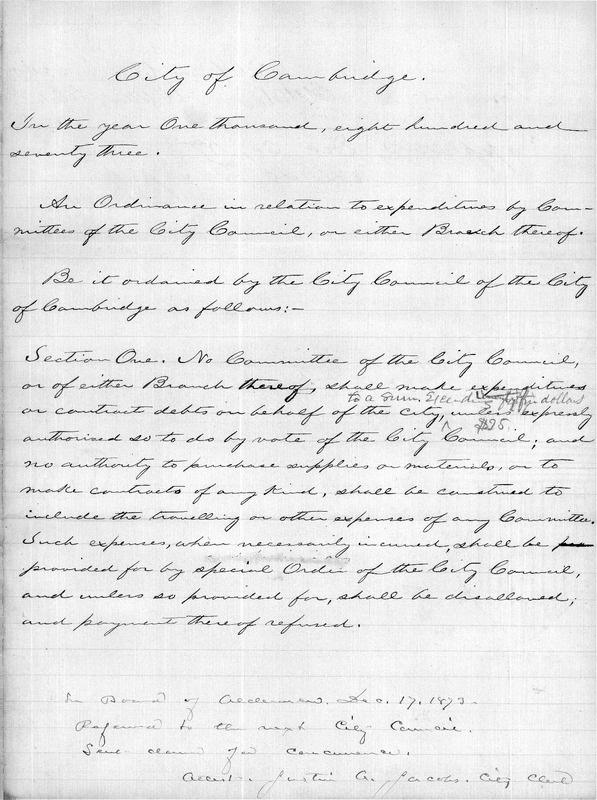 City of Cambridge.
In the year One thousand, eight hundred and
seventy three.
An Ordinance in relation to expenditures by Com-
mittees of the City Council, or either Branch thereof.
Be it ordained by the City Council of the City
of Cambridge as follows:-
Section One. No Committee of the City Council,
or of either Branch thereof, shall make expenditures
to a sum exceeding dollars
or contract debts on behalf of the city, unless expressly
$25.
authorised so to do by vote of the City Council; and
no authority to purchase supplies or materials, or to
make contracts of any kind, shall be construed to
include the travelling or other expenses of any Committee.
Such expenses, when necessarily incurred, shall be
provided for by special Order of the City Council,
and unless so provided for, shall be disallowed;
and payment thereof refused.
In Board of Aldermen. Dec. 17, 1873.
Referred to the next City Council.
Sent down for concurrence.
Attest. Justin A. Jacobs. City Clerk